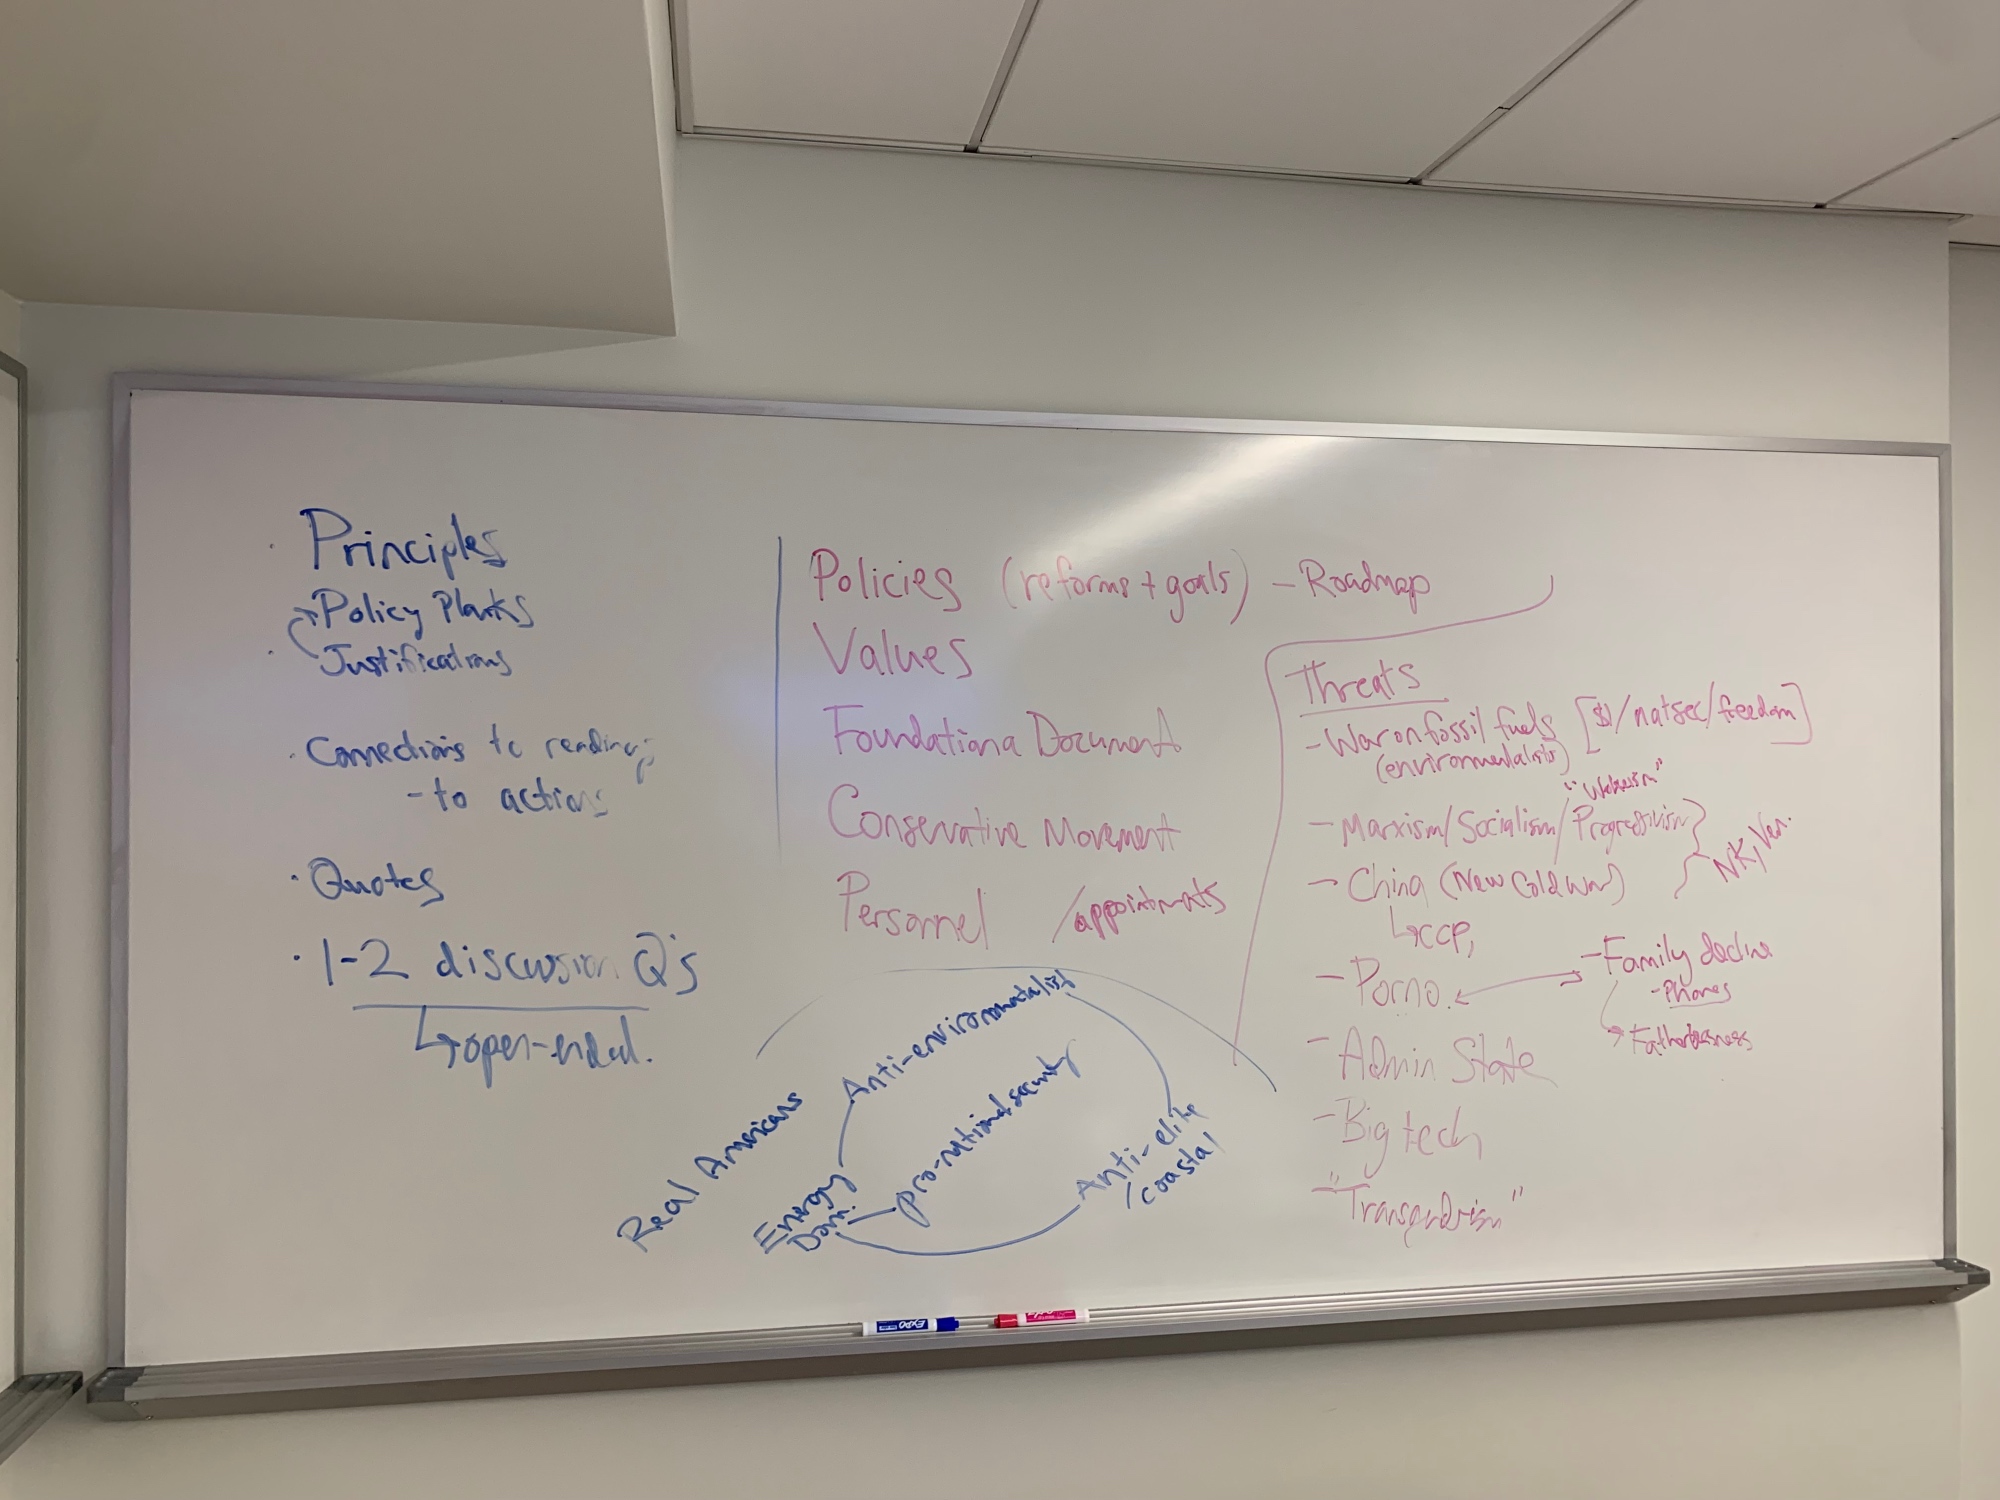 · Principles
Policy Planks
· Justifications
· Connections to readings
- to actions
· Quotes
· 1-2 discussion Q's
open-ended.
Policies (reforms + goals) - Roadmap
Values
Foundationa Document
Conservative Movement
Personnel /appointments
Threats
- War on fossil fuels [$/natsec/freedom]
(environmentalists)
"Wokeism"
- Marxism/Socialism/Progressivism
NK, Ven.
- China (New Cold War)
CCP,
- Porno
- Family decline
- Phones
Fatherlessness
- Admin State
- Big tech
- "Transgenderism"
Real Americans
Anti-environmentalist
pro-national security
Energy
Dom.
Anti-elite
/coastal
EXPO
EXPO